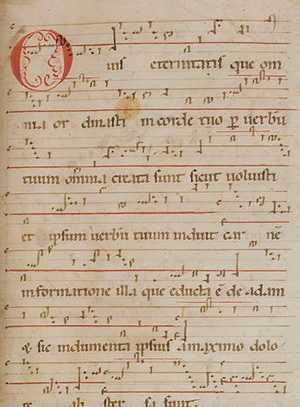 O vis eternitatis que om
nia or dinasti in corde tuo per verbū
tuum omnia creata sunt sicut voluisti
et ipsum verbū tuum induit car nē
in formatione illa que educta ē de adam
& sic indumenta ipsius a maximo dolo
re abs ter sa sunt.